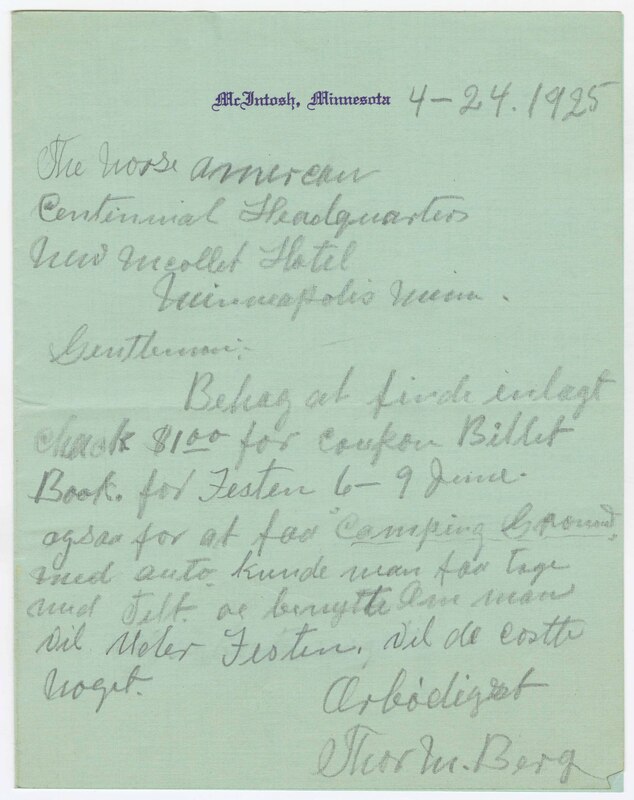 McIntosh, Minnesota 4-24.1925
The Norse American
Centennial Headquarters
New Nicollet Hotel
Minneapolis Minn.
Gentlemen:
Behag at finde inlagt
check $1.00 for coupon Billet
Book. for Festen 6-9 June.
ogsaa for at faa "Camping Ground"
med auto. kunde man faa tage
med Telt. og benytte Om man
vil Under Festen, vil de costte
noget.
Ærbødigst
Thor M. Berg